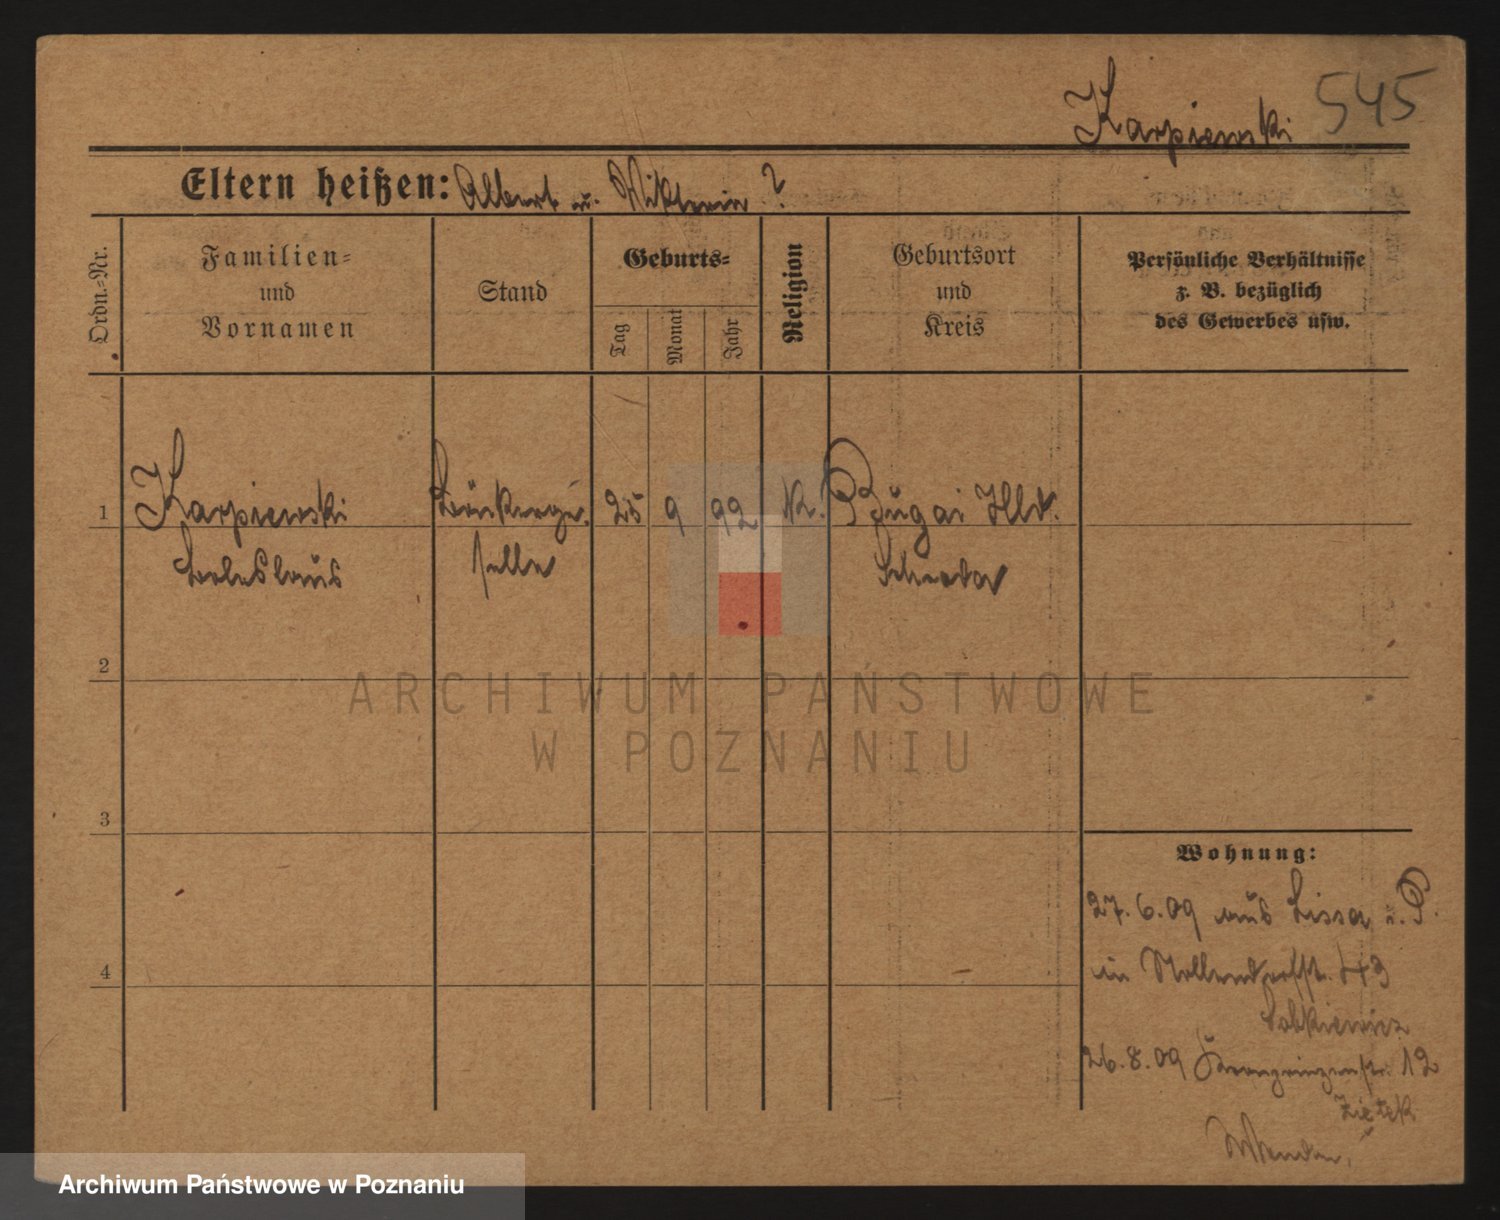 Karpiewski 545
Eltern heißen: Albert u. Viktoria ?
Ordn.-Nr.
Familien-
und
Vornamen
Stand
Geburts-
Tag
Monat
Jahr
Religion
Geburtsort
und
Kreis
Persönliche Verhältnisse
z. B. bezüglich
des Gewerbes usw.
1 Karpiewski Bäckerge- 25 9 92 k.
Boleslaus selle Schroda
2
3
4
Wohnung:
27.6.09 aus Lissa i. P.
in Nollendorfstr. 43
26.8.09 Kronprinzenstr. 12
Ziętek
ARCHIWUM PAŃSTWOWE
W POZNANIU
Archiwum Państwowe w Poznaniu